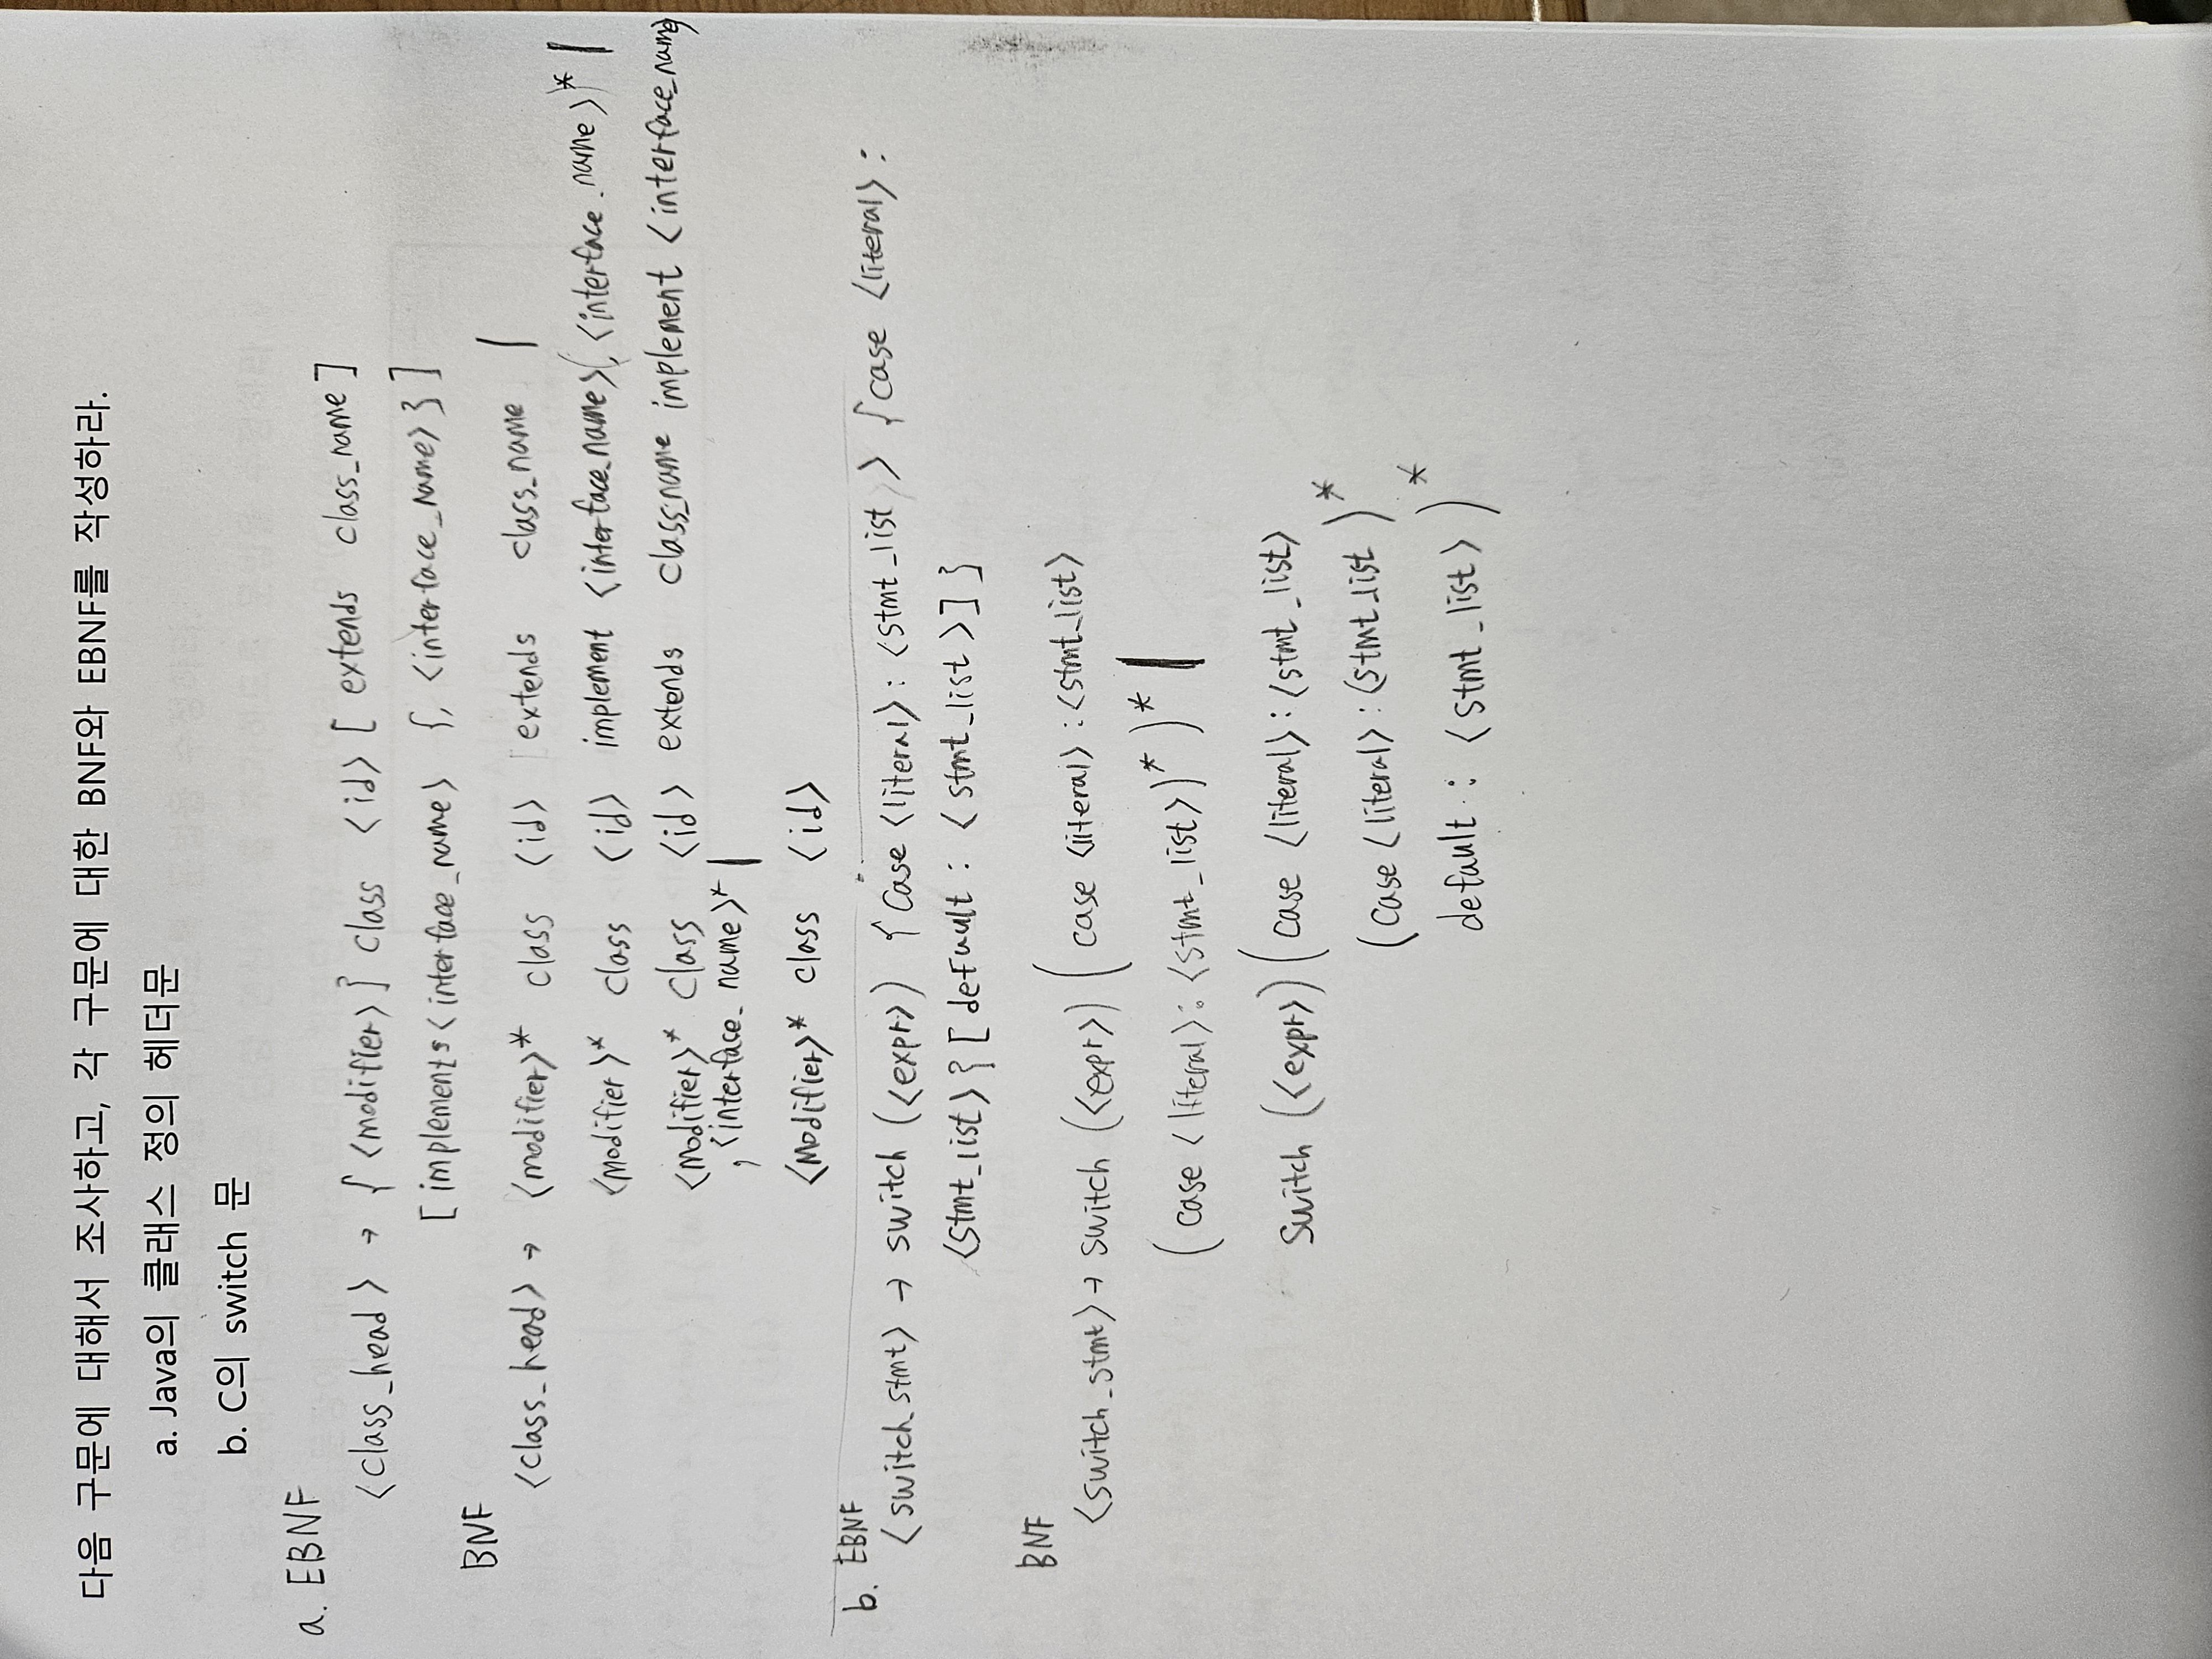 다음 구문에 대해서 조사하고, 각 구문에 대한 BNF와 EBNF를 작성하라.
a. Java의 클래스 정의 헤더문
b. C의 switch 문
a. EBNF
<class_head> → { <modifier> } class <id> [ extends class_name ]
[ implements <interface_name> {, <interface_name> } ]
BNF
<class_head> → <modifier>* class <id> extends class_name |
<modifier>* class <id> implement <interface_name>(, <interface_name>)* |
<modifier>* class <id> extends class_name implement <interface_name>
, <interface_name>* |
<modifier>* class <id>
b. EBNF
<switch_stmt> → switch (<expr>) { case <literal> : <stmt_list> { case <literal> :
<stmt_list> } [ default : <stmt_list> ] }
BNF
<switch_stmt> → switch (<expr>) ( case <literal> : <stmt_list>
( case <literal> : <stmt_list>)* )* |
switch (<expr>) ( case <literal> : <stmt_list>
( case <literal> : <stmt_list )*
default : <stmt_list> )*